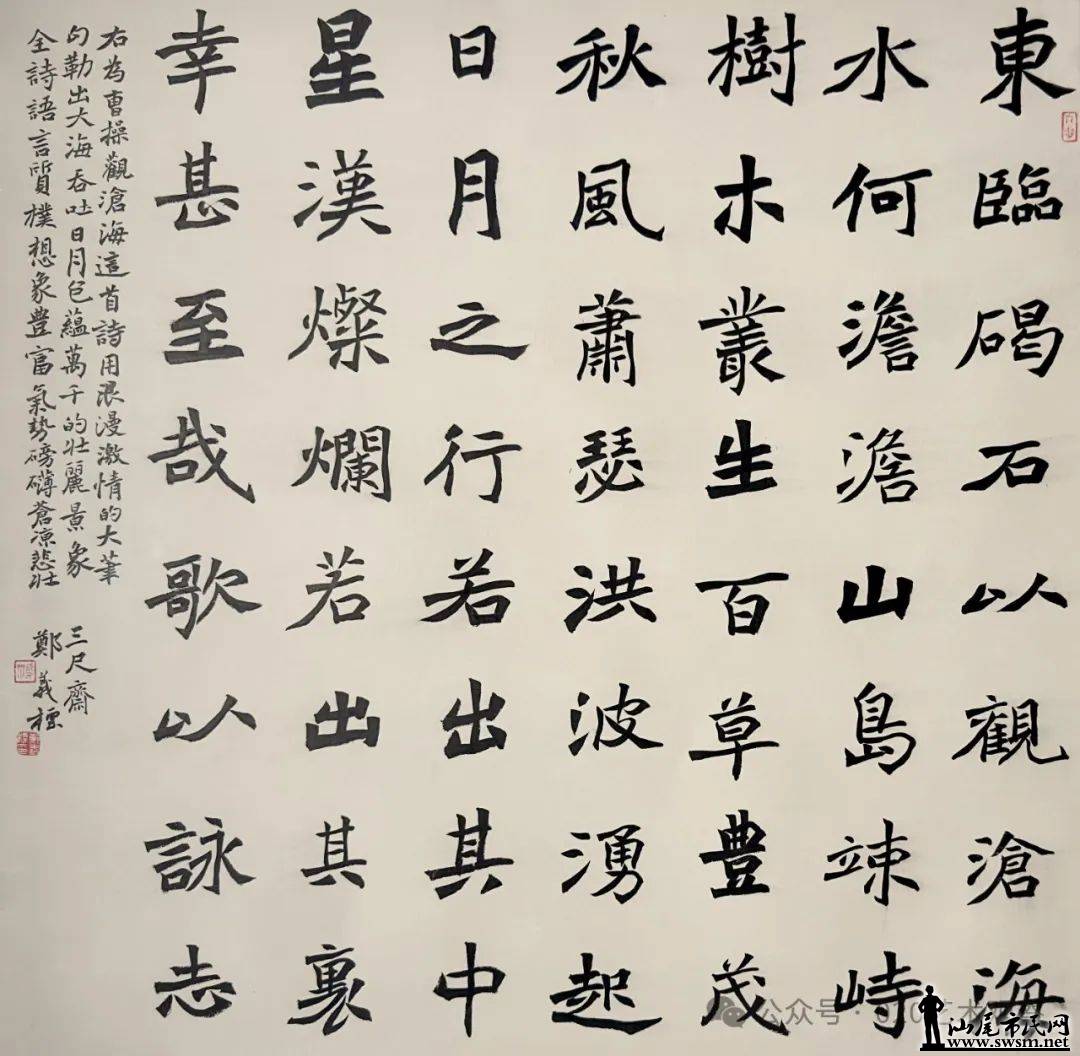 東臨碣石以觀滄海
水何澹澹山島竦峙
樹木叢生百草豊茂
秋風蕭瑟洪波湧起
日月之行若出其中
星漢燦爛若出其裏
幸甚至哉歌以詠志
右為曹操觀滄海這首詩用浪漫激情的大筆
勾勒出大海吞吐日月包蘊萬千的壯麗景象
全詩語言質樸想象豊富氣勢磅礴蒼凉悲壯
三尺齋
鄭義標
公众号
汕尾市民网
www.swsm.net